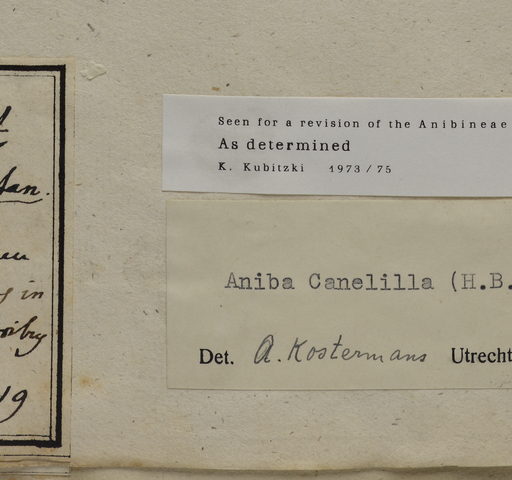 Seen for a revision of the Anibineae
As determined
K. Kubitzki 1973/75
Aniba Canelilla (H.B.
Det. A. Kostermans Utrecht
in
19